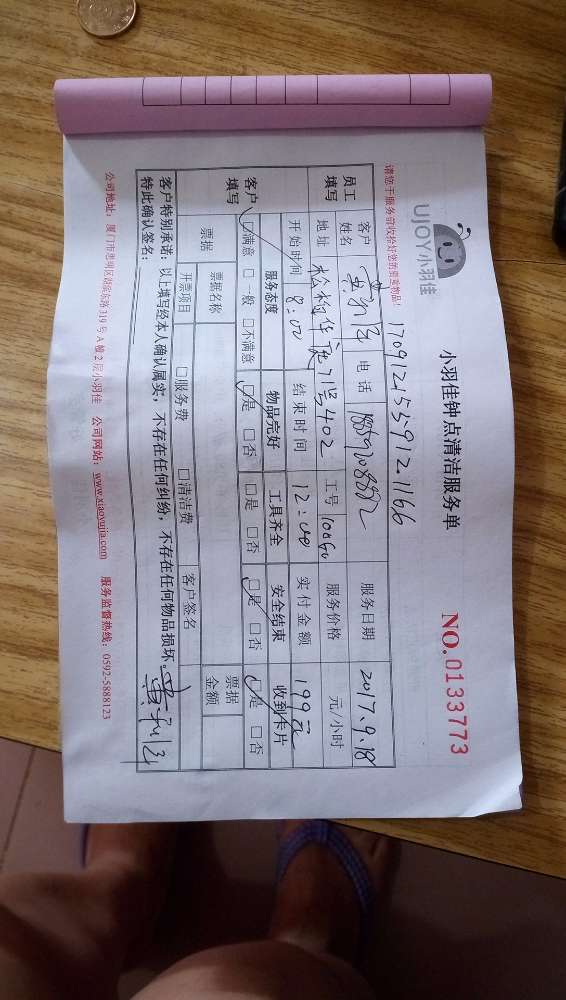 UJOY小羽佳
小羽佳钟点清洁服务单
NO.0133773
请您于服务前收拾好您的贵重物品!
1709121559121166
员工填写 客户姓名 电话 服务日期 2017.9.18
地址 71号402 工号 服务价格 元/小时
开始时间 8:00 结束时间 12:00 实付金额 199元
客户填写 服务态度 物品完好 工具齐全 安全结束 收到卡片
☑满意 □一般 □不满意 ☑是 □否 □是 □否 ☑是 □否 ☑是 □否
票据 票据名称 票据金额
开票项目 □服务费 □清洁费 客户签名
客户特别承诺：以上填写经本人确认属实，不存在任何纠纷，不存在任何物品损坏。
特此确认签名：
公司地址：厦门市思明区湖滨东路319号A幢2层小羽佳 公司网站：www.xiaoyujia.com 服务监督热线：0592-5888123